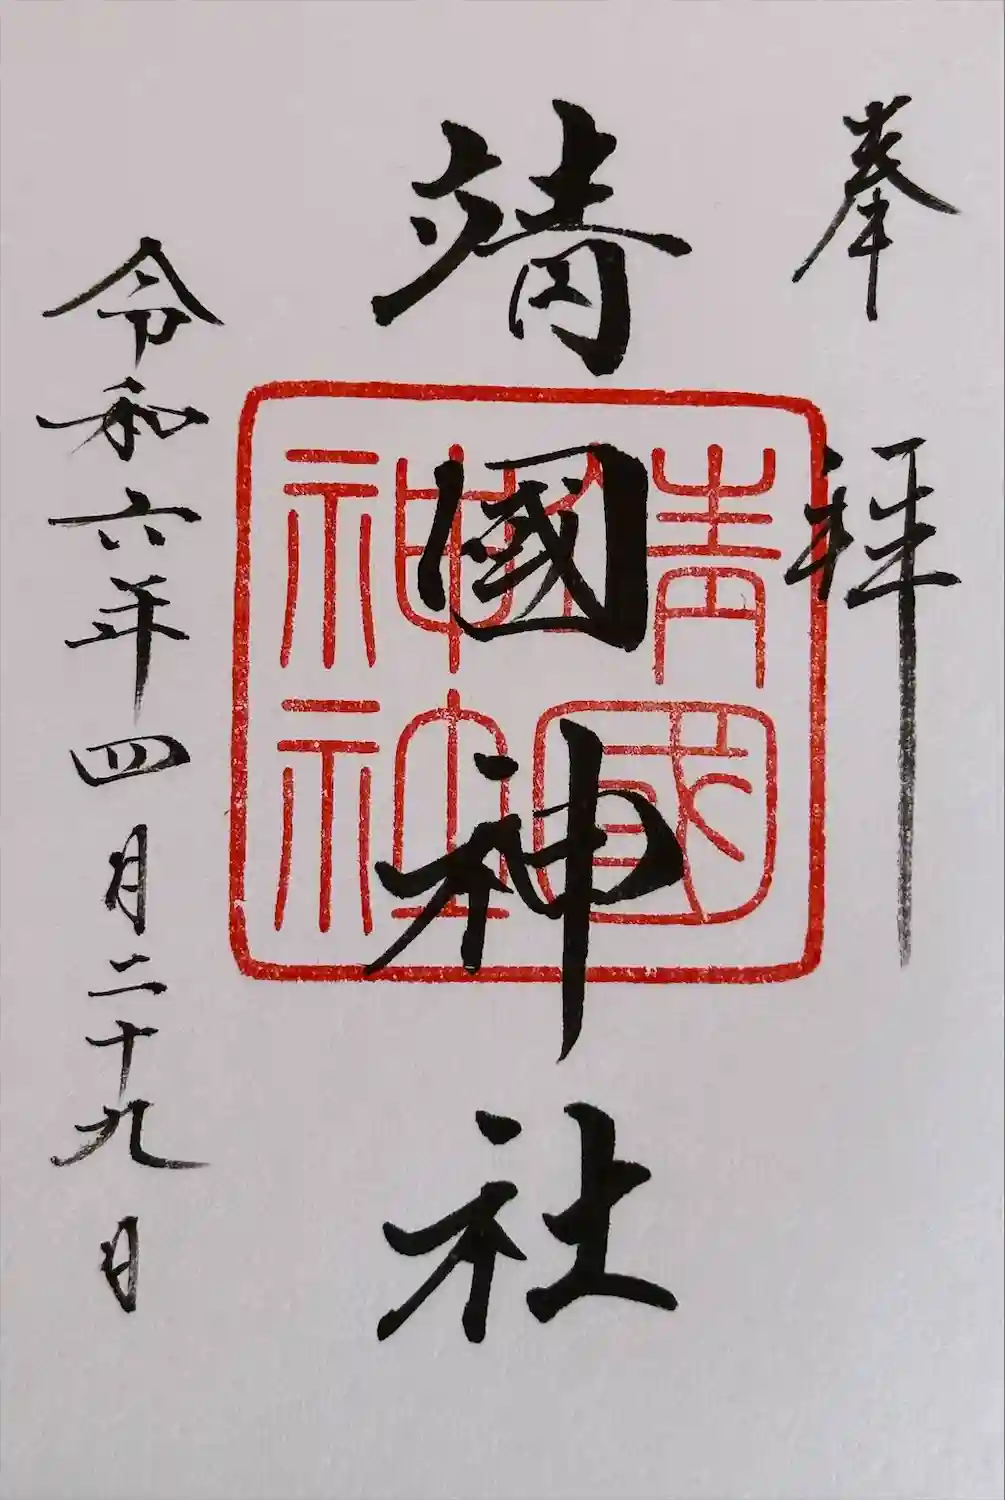 奉拝
靖國神社
靖國
神社
令和六年四月二十九日